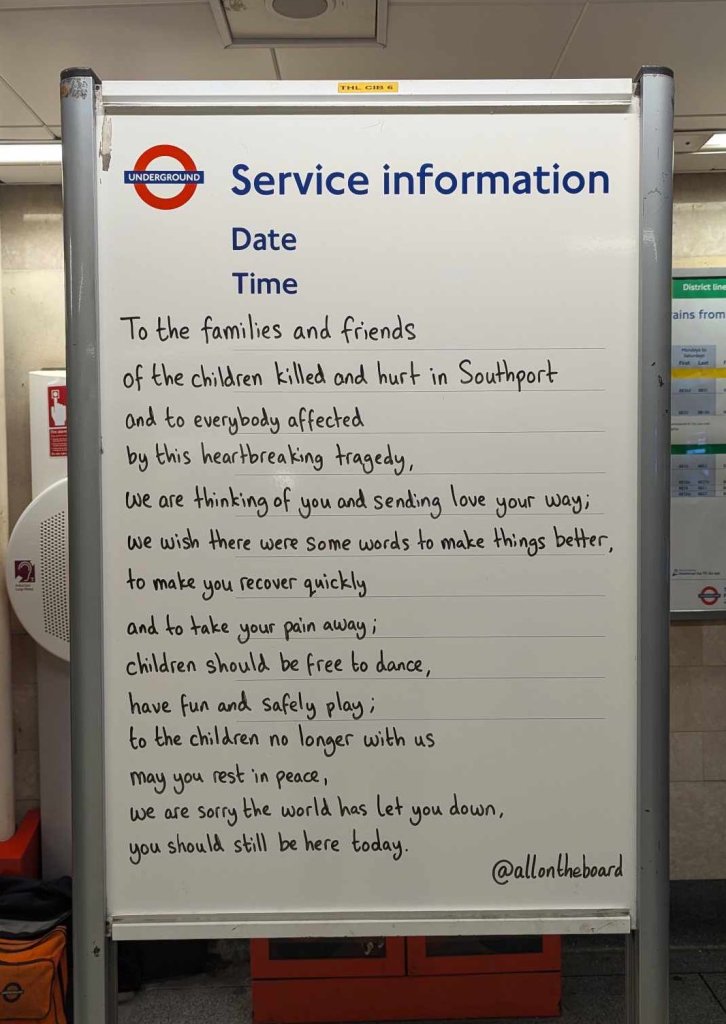 THL CIB 6
UNDERGROUND
Service information
Date
Time
To the families and friends
of the children killed and hurt in Southport
and to everybody affected
by this heartbreaking tragedy,
we are thinking of you and sending love your way;
we wish there were some words to make things better,
to make you recover quickly
and to take your pain away;
children should be free to dance,
have fun and safely play;
to the children no longer with us
may you rest in peace,
we are sorry the world has let you down,
you should still be here today.
@allontheboard
District line
ains from
Mondays to
Saturdays
First Last